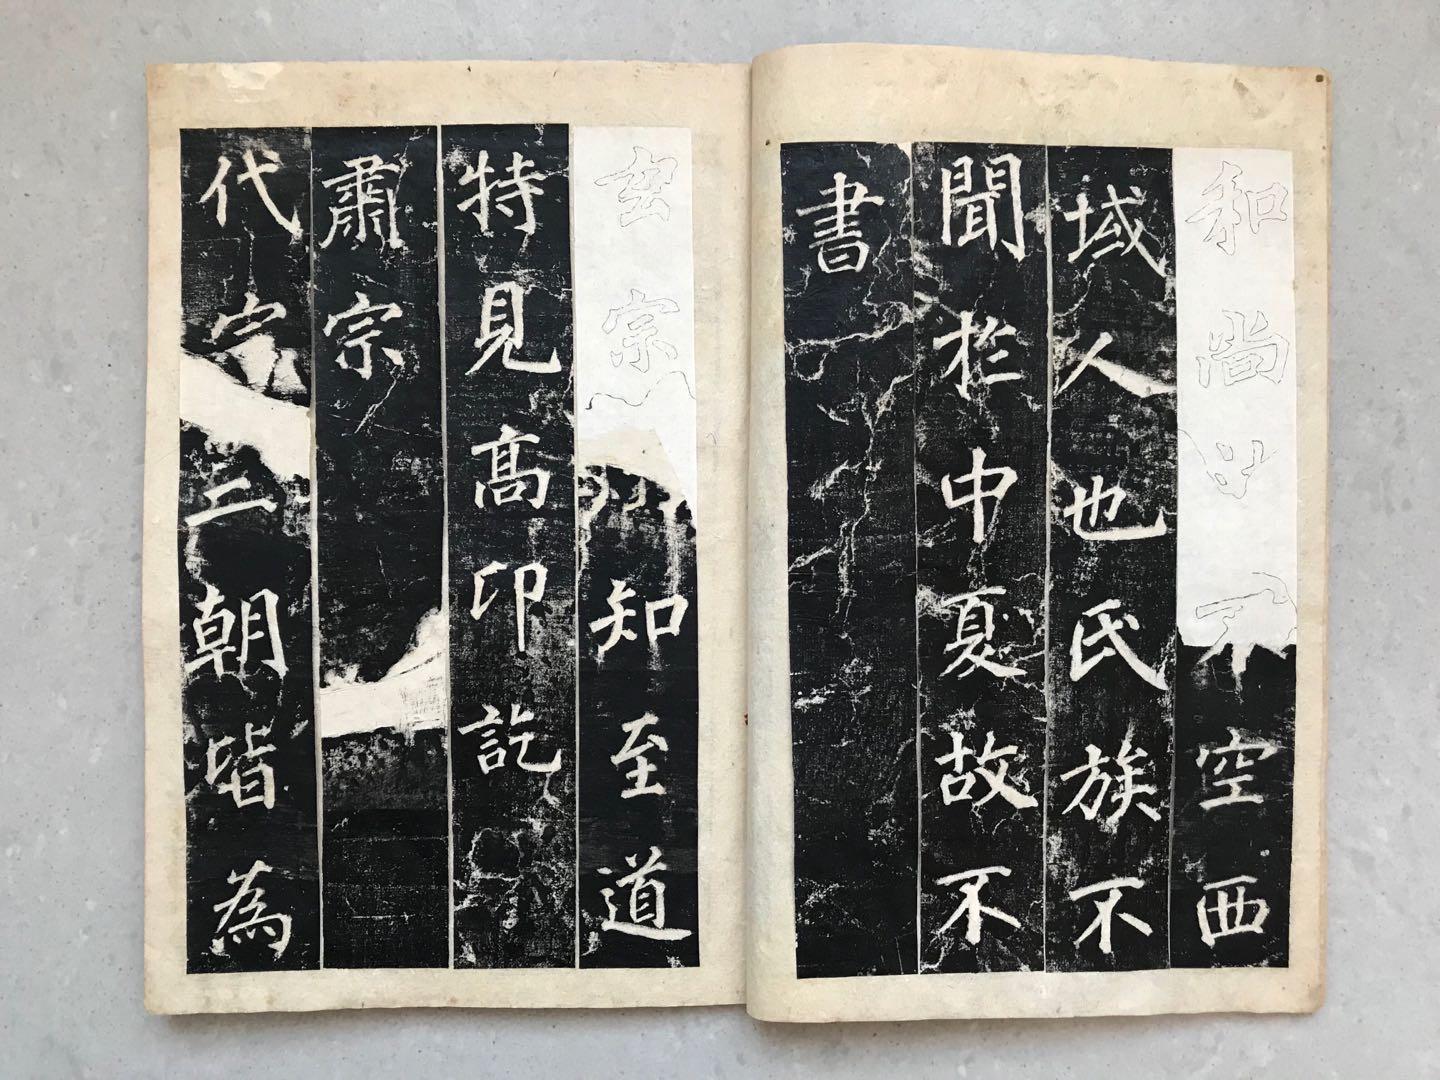 和尚不空西
域人也氏族不
聞於中夏故不
書
玄宗知至道
特見高卬訖
肅宗
代宗三朝皆為